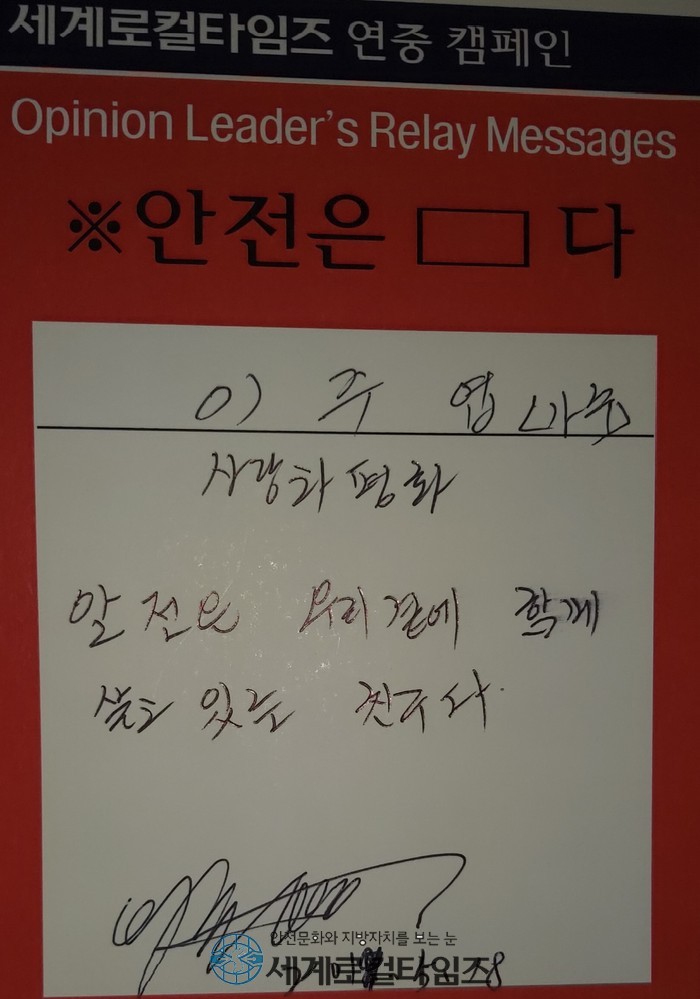 세계로컬타임즈 연중 캠페인
Opinion Leader's Relay Messages
※안전은 □ 다
이 주 엽 (가수)
사랑과 평화
안전은 우리 곁에 함께
살고 있는 친구다.
안전문화와 지방자치를 보는 눈
세계로컬타임즈